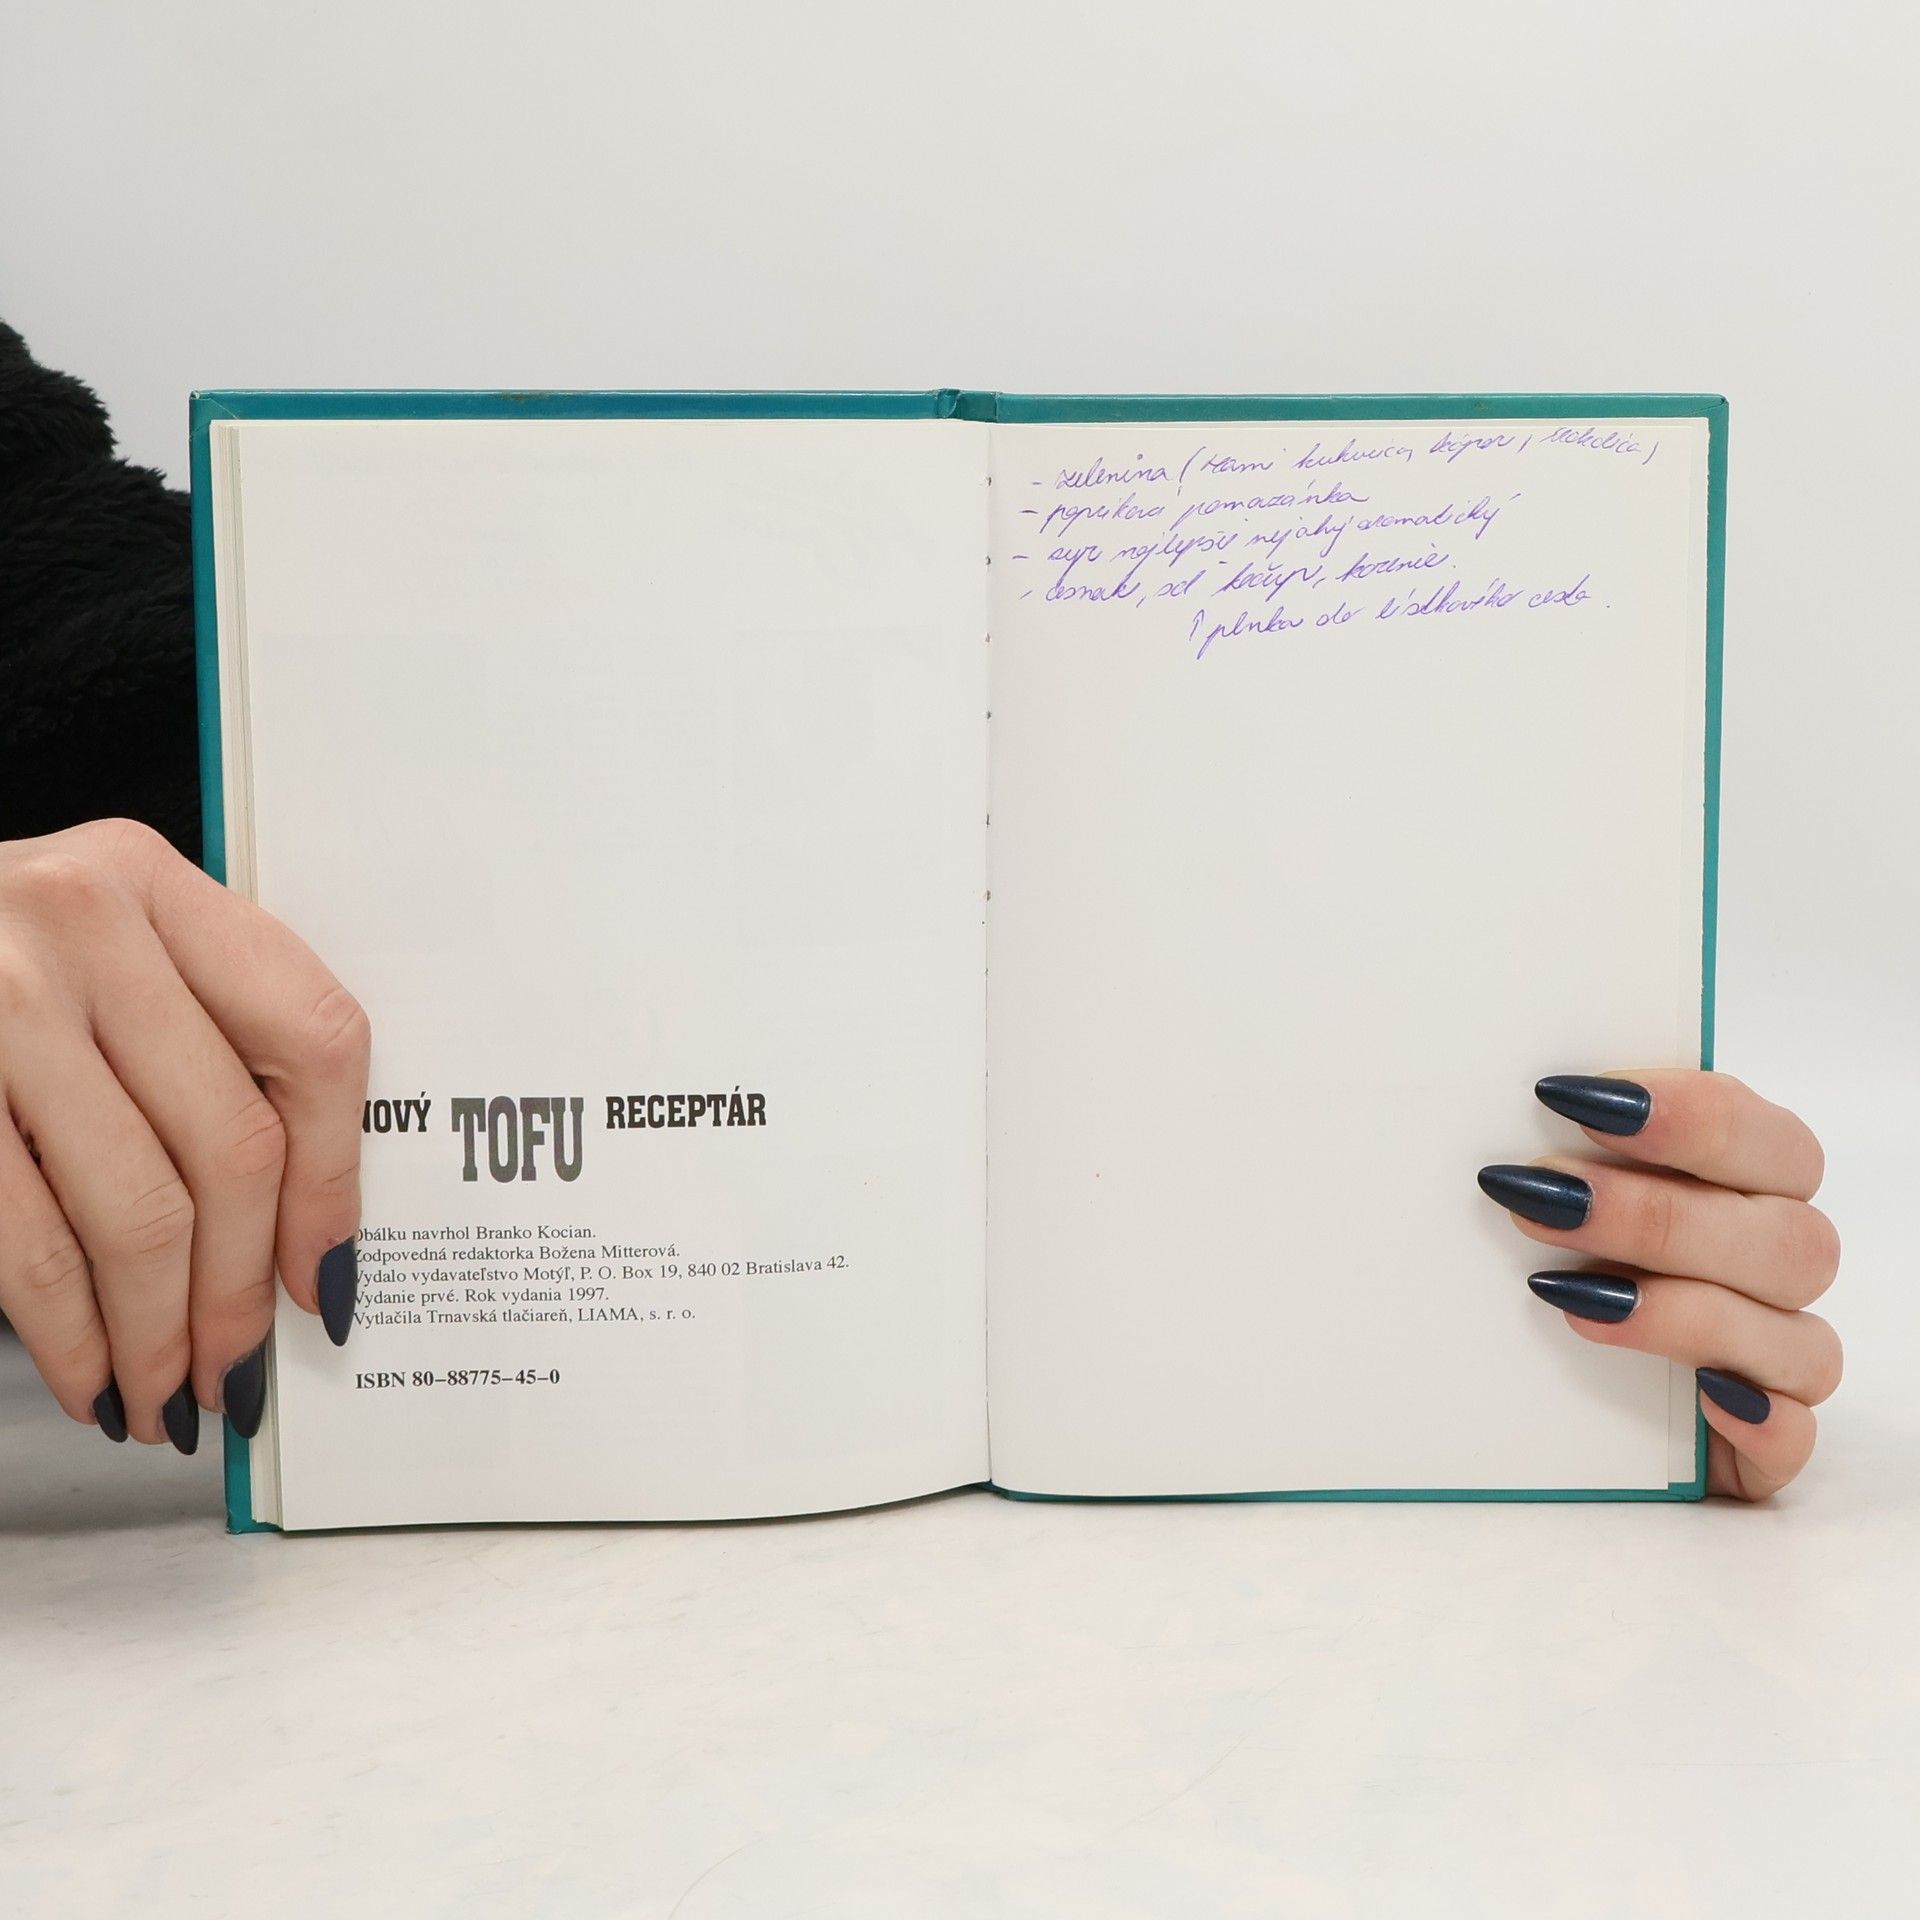 NOVÝ TOFU RECEPTÁR
Obálku navrhol Branko Kocian.
Zodpovedná redaktorka Božena Mitterová.
Vydalo vydavateľstvo Motýľ, P. O. Box 19, 840 02 Bratislava 42.
Vydanie prvé. Rok vydania 1997.
Vytlačila Trnavská tlačiareň, LIAMA, s. r. o.
ISBN 80–88775–45–0
- zelenina ( kukurica, )
- papriková pomazánka
- syr najlepšie nejaký aromatický
- cesnak, soľ kečup, korenie.
↑ plnka do lístkového cesta.